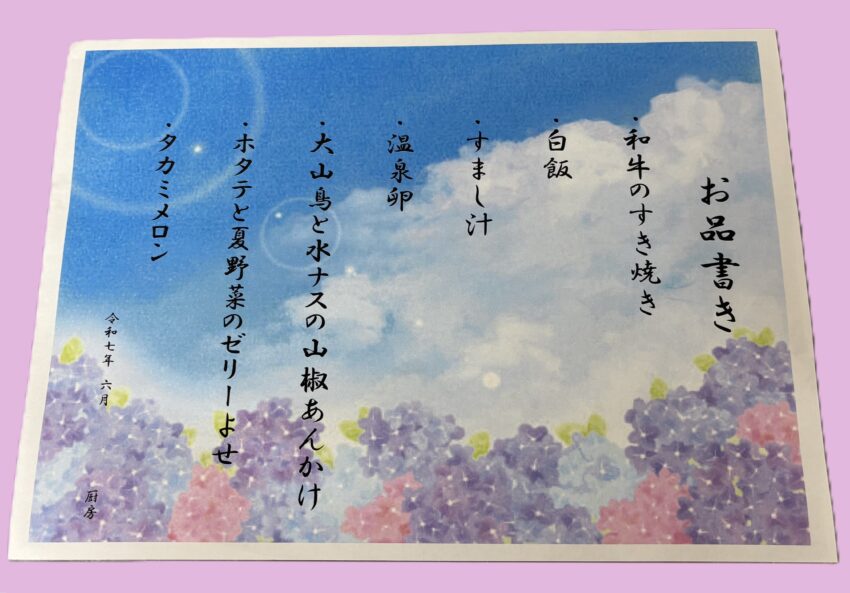 お品書き
・和牛のすき焼き
・白飯
・すまし汁
・温泉卵
・大山鳥と水ナスの山椒あんかけ
・ホタテと夏野菜のゼリーよせ
・タカミメロン
令和七年 六月
厨房